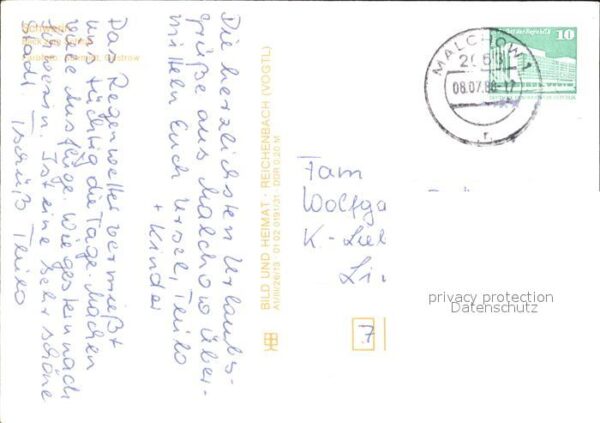 Schwerin
Die herzlichsten Urlaubs-
grüße aus Malchow über-
mitteln Euch Ursel, Theiko
+ Kinder
Das Regenwetter vermießt
uns tüchtig die Tage. Machen
viele Ausflüge. Wie gestern nach
Schwerin. Ist eine sehr schöne
Stadt. Tschüß Theiko
BILD UND HEIMAT · REICHENBACH (VOGTL)
A1/III/26/13 01 02 0191/31 DDR 0,20 M
MALCHOW 1
2063
08.07.86-17
r
10
Fam
Wolfga
K.-Lie
Li
7
privacy protection
Datenschutz